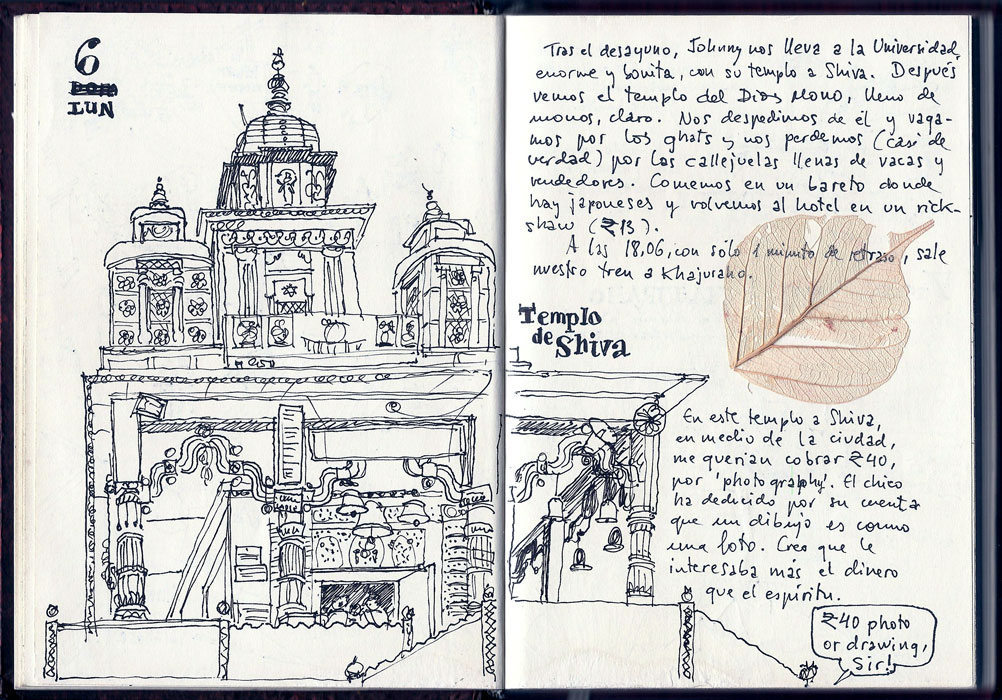 6
DOM
LUN
Tras el desayuno, Johnny nos lleva a la Universidad,
enorme y bonita, con su templo a Shiva. Después
vemos el templo del Dios Mono, lleno de
monos, claro. Nos despedimos de él y vaga-
mos por los ghats y nos perdemos (casi de
verdad) por las callejuelas llenas de vacas y
vendedores. Comemos en un bareto donde
hay japoneses y volvemos al hotel en un rick-
shaw (₹13).
A las 18.06, con sólo 1 minuto de retraso, sale
nuestro tren a Khajuraho.
Templo
de Shiva
En este templo a Shiva,
en medio de la ciudad,
me querían cobrar ₹40,
por 'photography'. El chico
ha deducido por su cuenta
que un dibujo es como
una foto. Creo que le
interesaba más el dinero
que el espíritu.
₹40 photo
or drawing,
Sir!